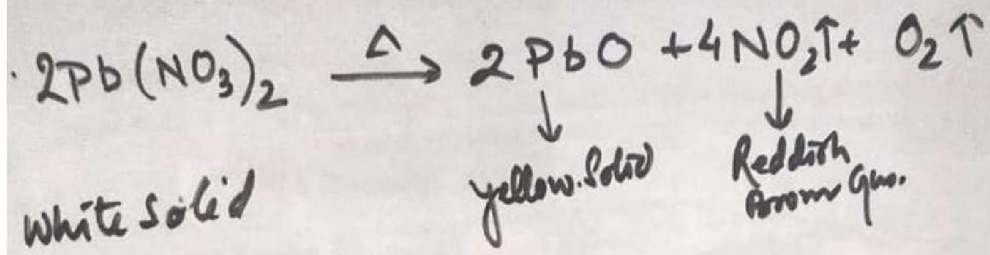 2Pb(NO₃)₂ —Δ→ 2PbO + 4NO₂↑ + O₂↑
↓ ↓
white solid yellow solid Reddish
Brown gas.